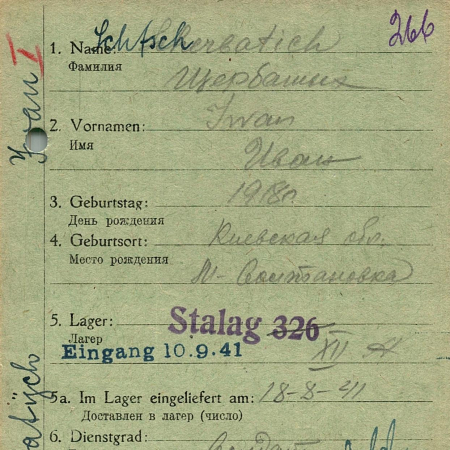 266
1. Name: Schtscherbatich
Фамилия
Щербатих
2. Vornamen: Iwan
Имя
Иван
3. Geburtstag: 1918г.
День рождения
4. Geburtsort: Киевская обл.
Место рождения
5. Lager: Stalag 326
Лагерь
XII A
Eingang 10.9.41
5a. Im Lager eingeliefert am: 18-8-41
Доставлен в лагерь (число)
6. Dienstgrad: Солдат
Iwan I